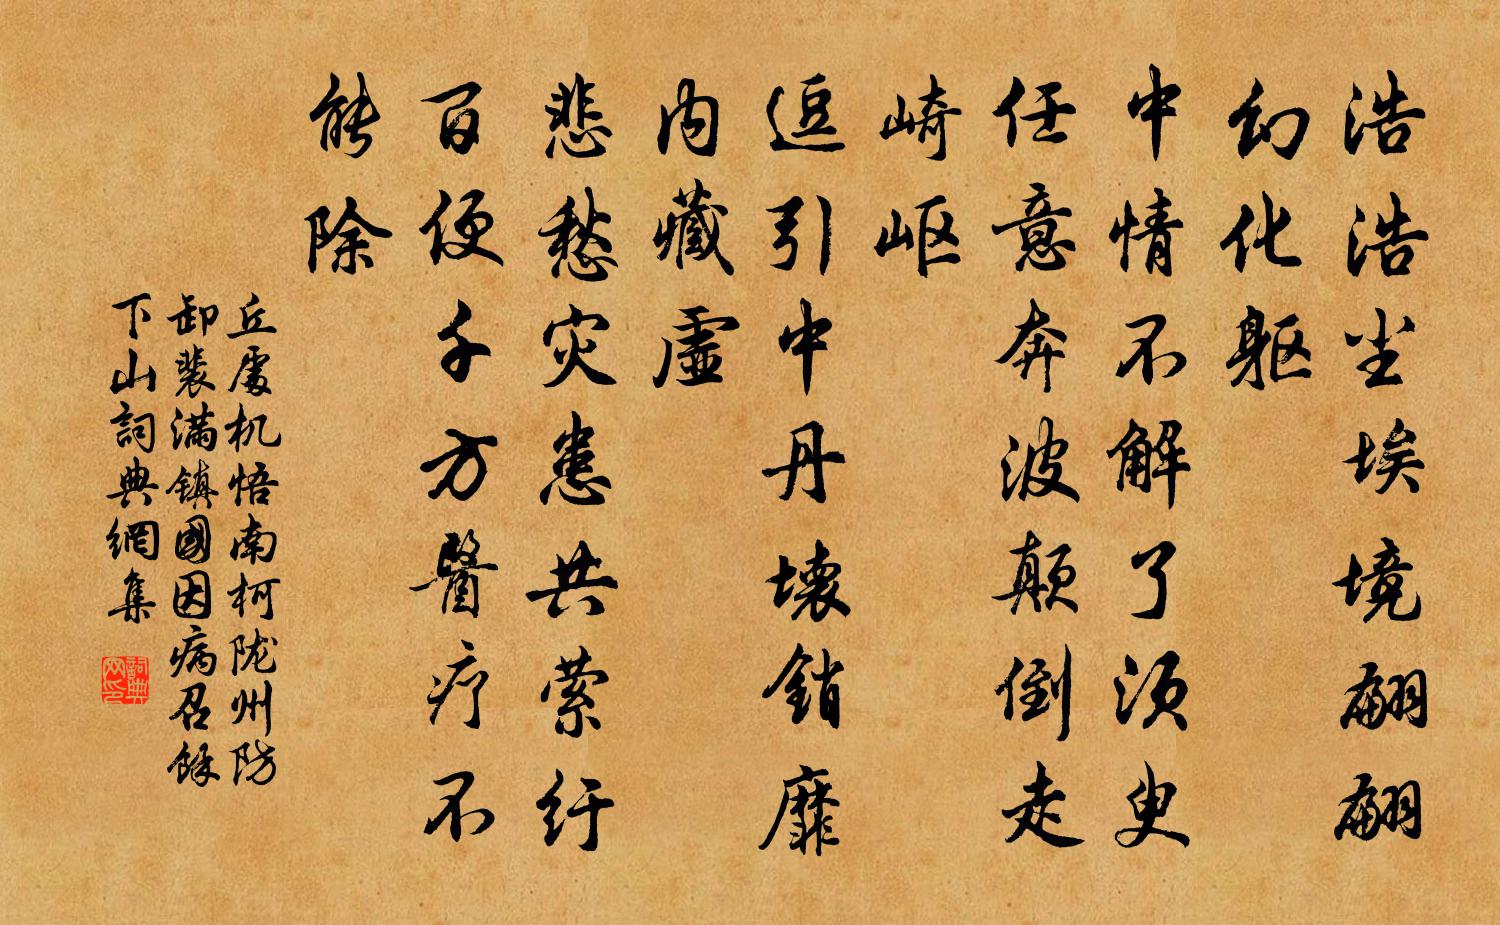 浩浩尘埃境翩翩
幻化躯
中情不解了须臾
任意奔波颠倒走
崎岖
逗引中丹壊销靡
内藏虚
悲愁灾患共萦纡
百便千方医疗不
能除
丘處机悟南柯陇州防
卸裴满镇國因病召馀
下山詞典網集
詞典
网印